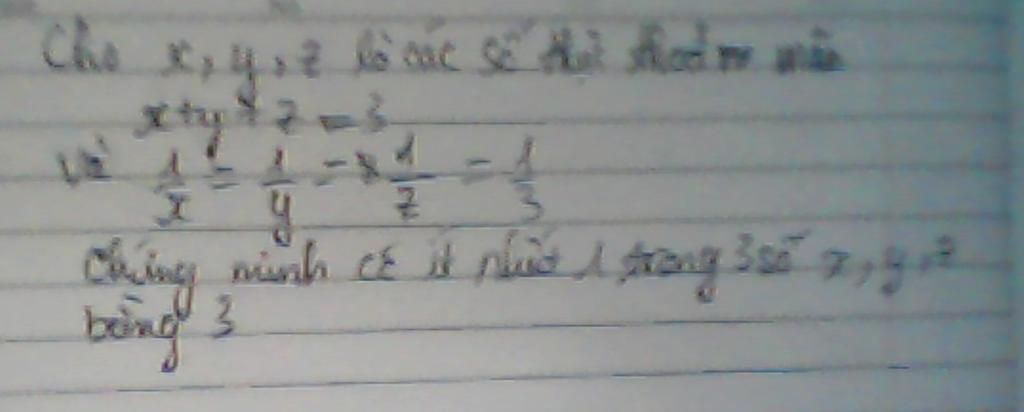 Cho x, y, z là các số thực thoả mãn
x + y + z = 3
Và 1/x = 1/y = 1/z = 1/3
Chứng minh có ít nhất 1 trong 3 số x, y, z
bằng 3